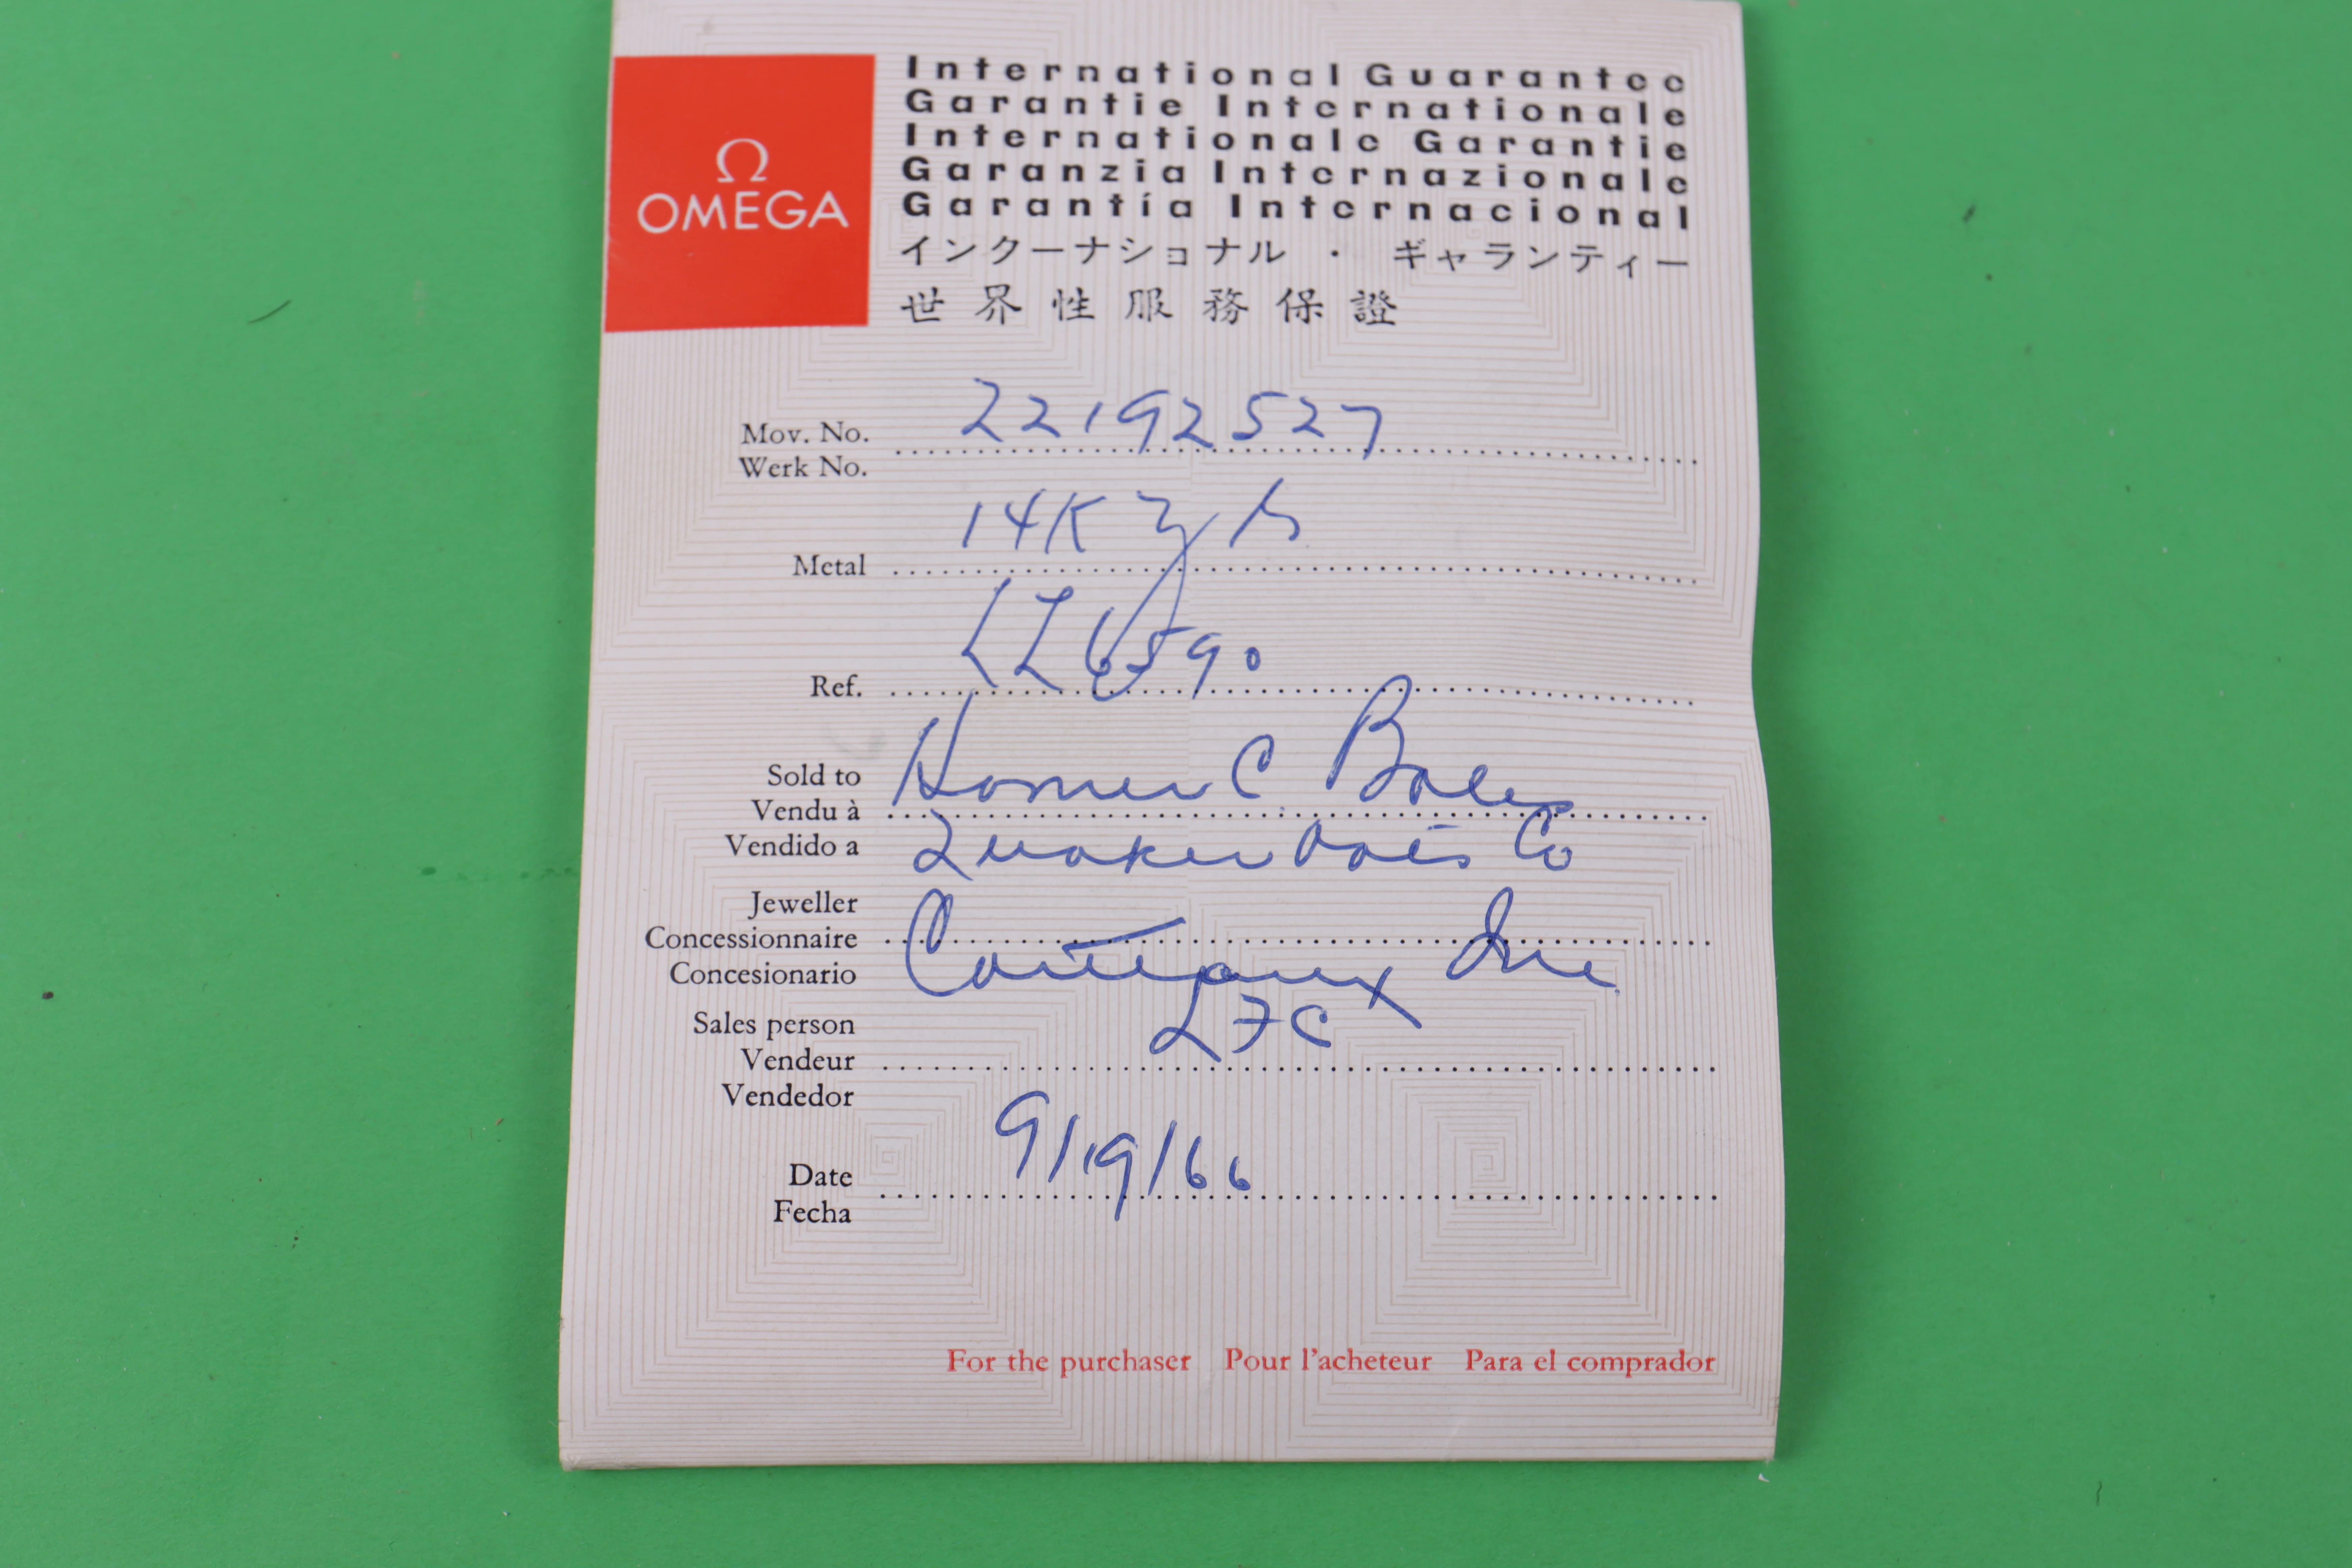 Ω
OMEGA
International Guarantee
Garantie Internationale
Internationale Garantie
Garanzia Internazionale
Garantía Internacional
インターナショナル ・ ギャランティー
世界性服務保證
Mov. No. 22192527
Werk No.
14K
Metal
LL6590
Ref.
Sold to Homer C.
Vendu à
Vendido a Quaker Oats Co
Jeweller
Concessionnaire
Concesionario Inc
Sales person LFC
Vendeur
Vendedor
9/19/66
Date
Fecha
For the purchaser Pour l'acheteur Para el comprador